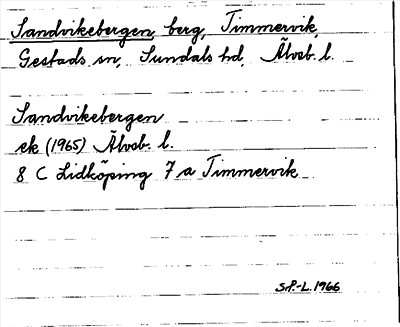 Sandvikebergen, berg, Timmervik,
Gestads sn, Sundals hd, Älvsb. l.
Sandvikebergen
ek (1965) Älvsb. l.
8 C Lidköping 7 a Timmervik
S.P.-L. 1966